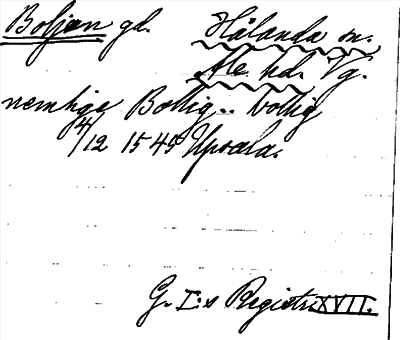 Boljan gd. Hålanda sn.
Ale hd. Vg.
nemlige Bollig.. bollig
4/12 1545 Upsala.
G. I:s Registr. XVII.